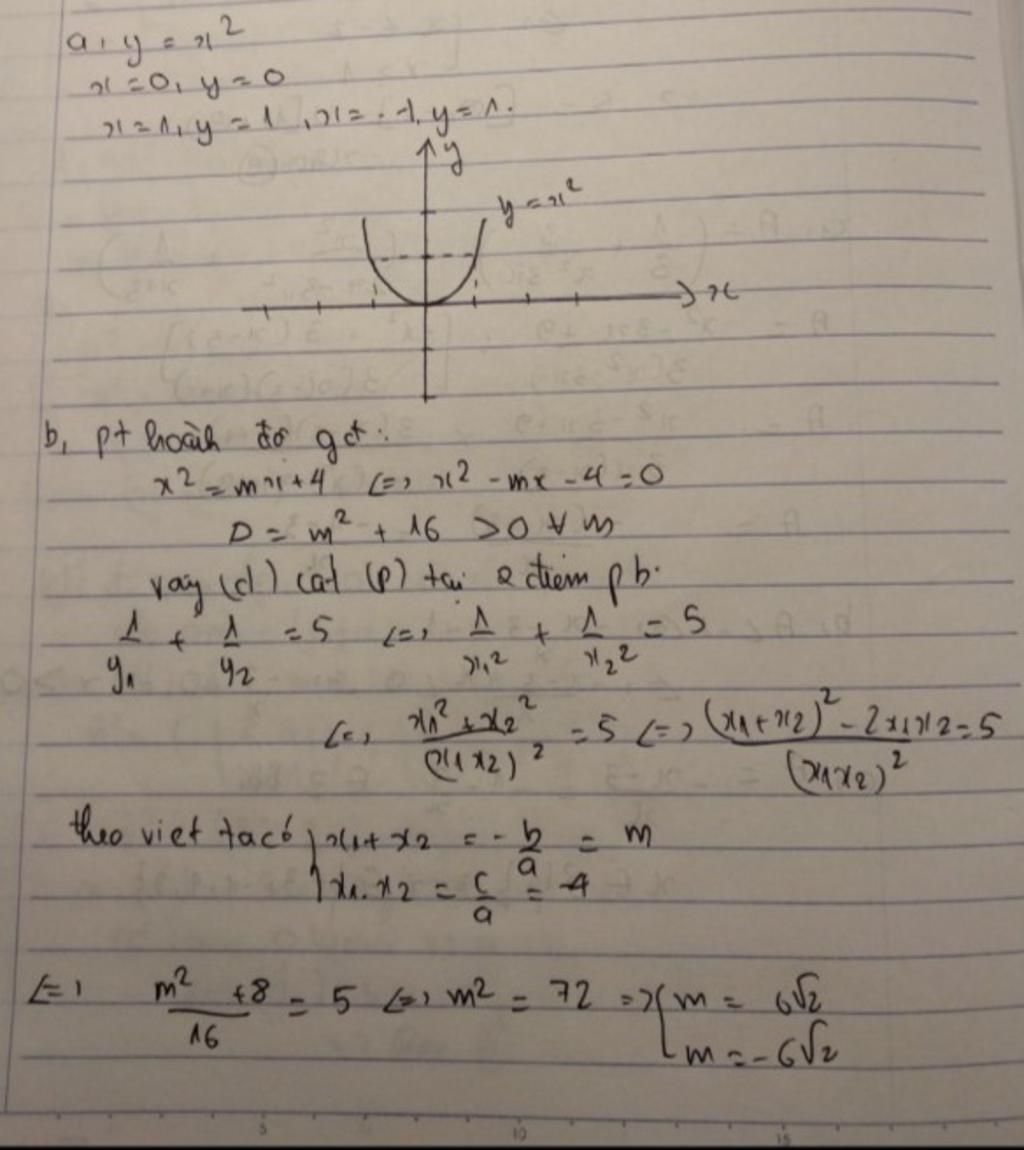 a, y = x²
x = 0, y = 0
x = 1, y = 1, x = -1, y = 1.
y
y = x²
x
b, pt hoành độ gđ:
x² = mx + 4 <=> x² - mx - 4 = 0
D = m² + 16 > 0 ∀ m
vay (d) cat (P) tai 2 điem pb.
1/y₁ + 1/y₂ = 5 <=> 1/x₁² + 1/x₂² = 5
<=> (x₁² + x₂²)/(x₁x₂)² = 5 <=> ((x₁ + x₂)² - 2x₁x₂)/(x₁x₂)² = 5
theo viet ta có { x₁ + x₂ = -b/a = m
x₁.x₂ = c/a = -4
<=> (m² + 8)/16 = 5 <=> m² = 72 => [ m = 6√2
m = -6√2
5 10 15